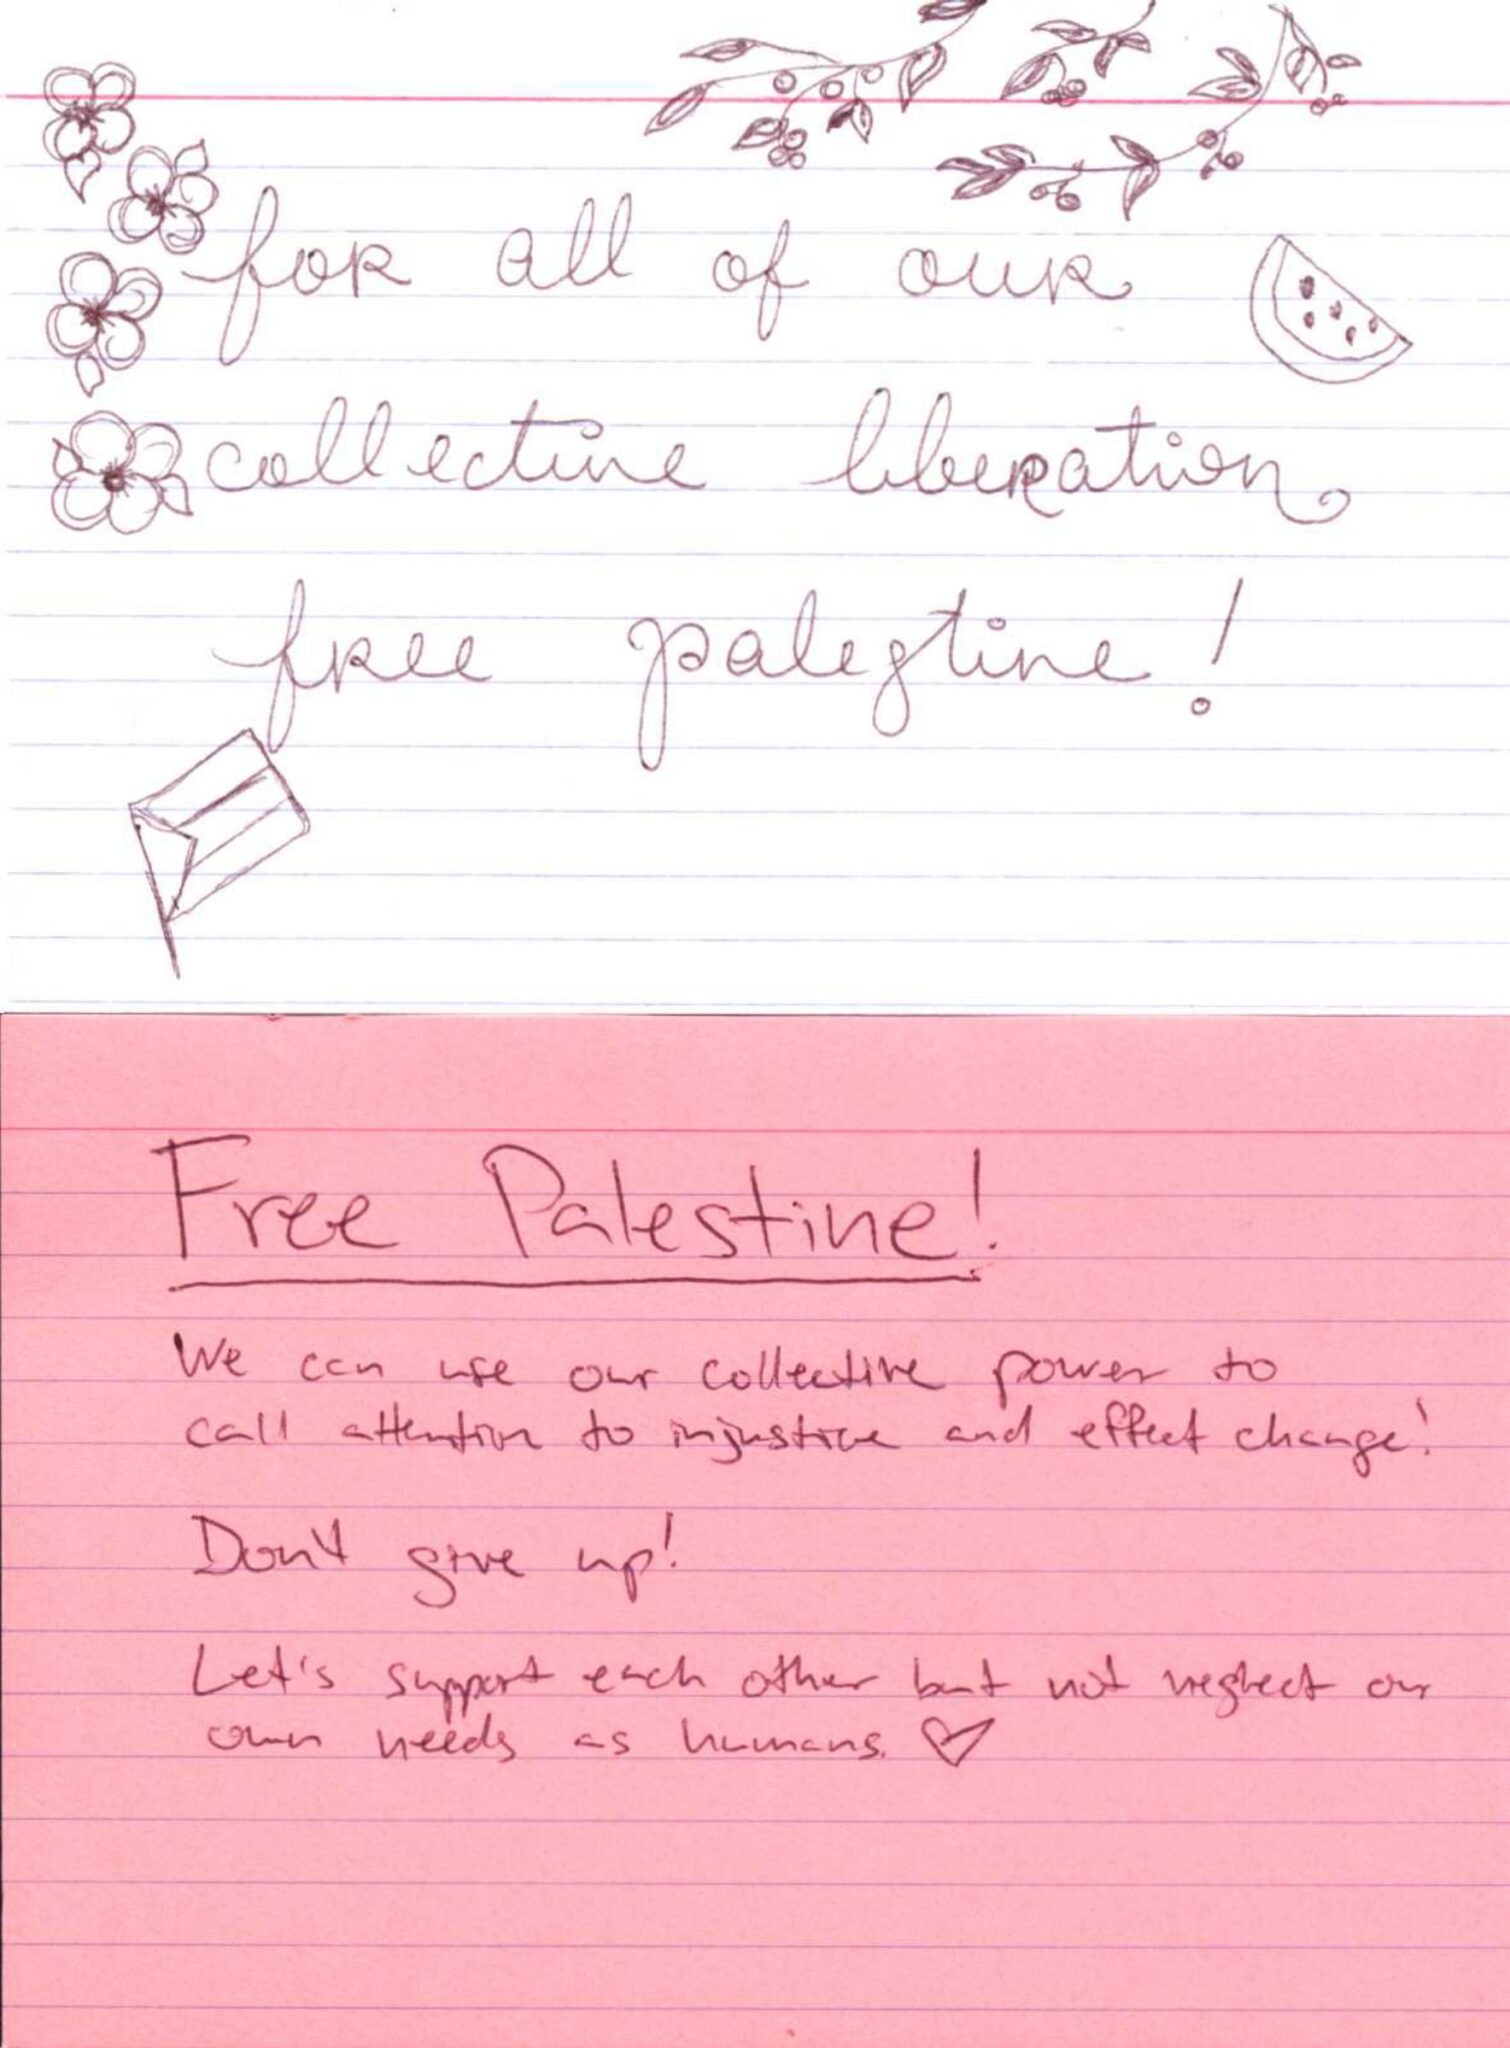 for all of our
collective liberation
free palestine!
Free Palestine!
We can use our collective power to
call attention to injustice and effect change!
Don't give up!
Let's support each other but not neglect our
own needs as humans.